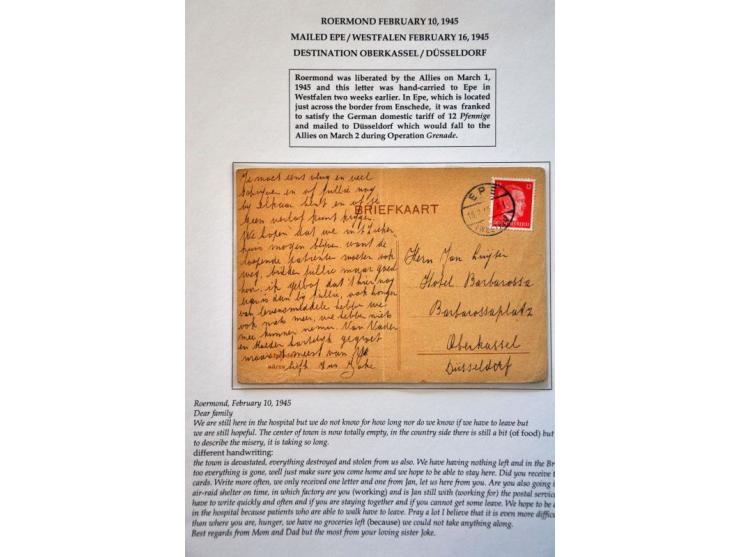 ROERMOND FEBRUARY 10, 1945
MAILED EPE / WESTFALEN FEBRUARY 16, 1945
DESTINATION OBERKASSEL / DÜSSELDORF
Roermond was liberated by the Allies on March 1,
1945 and this letter was hand-carried to Epe in
Westfalen two weeks earlier. In Epe, which is located
just across the border from Enschede, it was franked
to satisfy the German domestic tariff of 12 Pfennige
and mailed to Düsseldorf which would fall to the
Allies on March 2 during Operation Grenade.
Je moet eens vlug en veel
schrijven en of jullie nog
bij elkaar bent en of je
geen verlof kunt krijgen.
We hopen dat we in 't zieken
huis mogen blijven want de
loopende patienten moeten ook
weg, bidden jullie maar goed
hoor, ik geloof dat 't hier nog
erger is dan bij jullie, ook honger
van levensmiddelen hebben we
ook niets meer, we hebben niets
mee kunnen nemen. Van Vader
en Moeder hartelijk gegroet
maar 't meest van jullie
liefh. zus Joke
BRIEFKAART
EPE
(WESTF)
12
Herrn Jan
Hotel Barbarossa
Barbarossaplatz
Oberkassel
Düsseldorf
Roermond, February 10, 1945
Dear family
We are still here in the hospital but we do not know for how long nor do we know if we have to leave but
we are still hopeful. The center of town is now totally empty, in the country side there is still a bit (of food) but
to describe the misery, it is taking so long.
different handwriting:
the town is devastated, everything destroyed and stolen from us also. We have having nothing left and in the Br
too everything is gone, well just make sure you come home and we hope to be able to stay here. Did you receive t
cards. Write more often, we only received one letter and one from Jan, let us here from you. Are you also going i
air-raid shelter on time, in which factory are you (working) and is Jan still with (working for) the postal servic
have to write quickly and often and if you are staying together and if you cannot get some leave. We hope to be a
in the hospital because patients who are able to walk have to leave. Pray a lot I believe that it is even more diffic
than where you are, hunger, we have no groceries left (because) we could not take anything along.
Best regards from Mom and Dad but the most from your loving sister Joke.